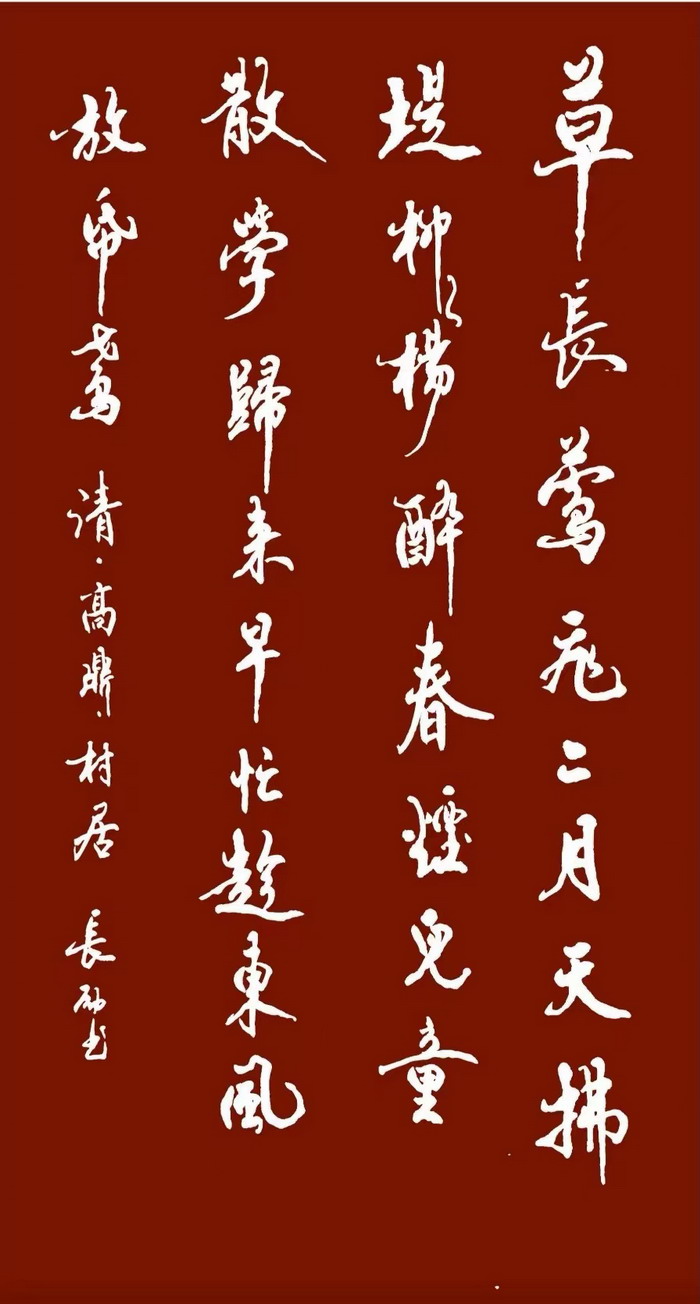 草長鶯飛二月天拂
堤柳楊醉春煙兒童
散學歸来早忙趁東風
放帋鳶 清·高鼎·村居 長书